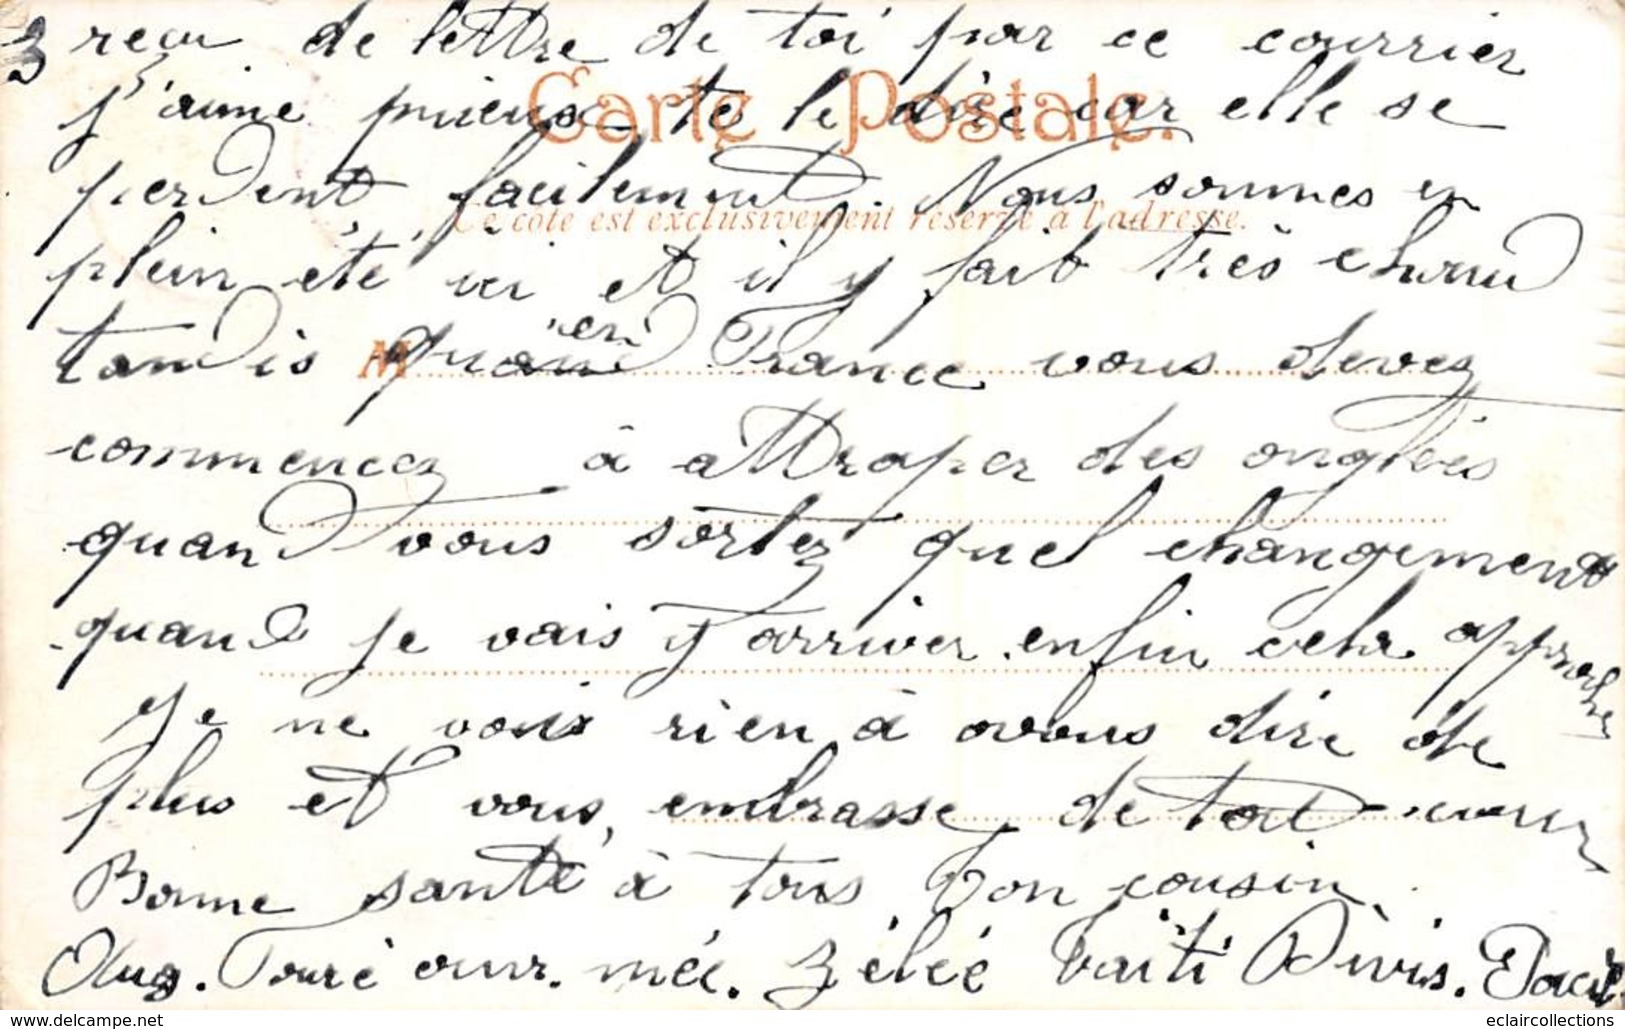 reçu de lettre de toi par ce courrier
j'aime mieux te le dire car elle se
Carte Postale.
perdent facilement. Nous sommes en
Ce côté est exclusivement réservé à l'adresse.
plein été ici et il y fait très chaud
tandis qu'en France vous devez
M
commencez à attraper des onglées
quand vous sortez quel changement
quand je vais y arriver enfin cela approche
Je ne vois rien à vous dire de
plus et vous embrasse de tout cœur
Bonne santé à tous Ton cousin
Aug. Touré our. méc. Zélée
eclaircollections